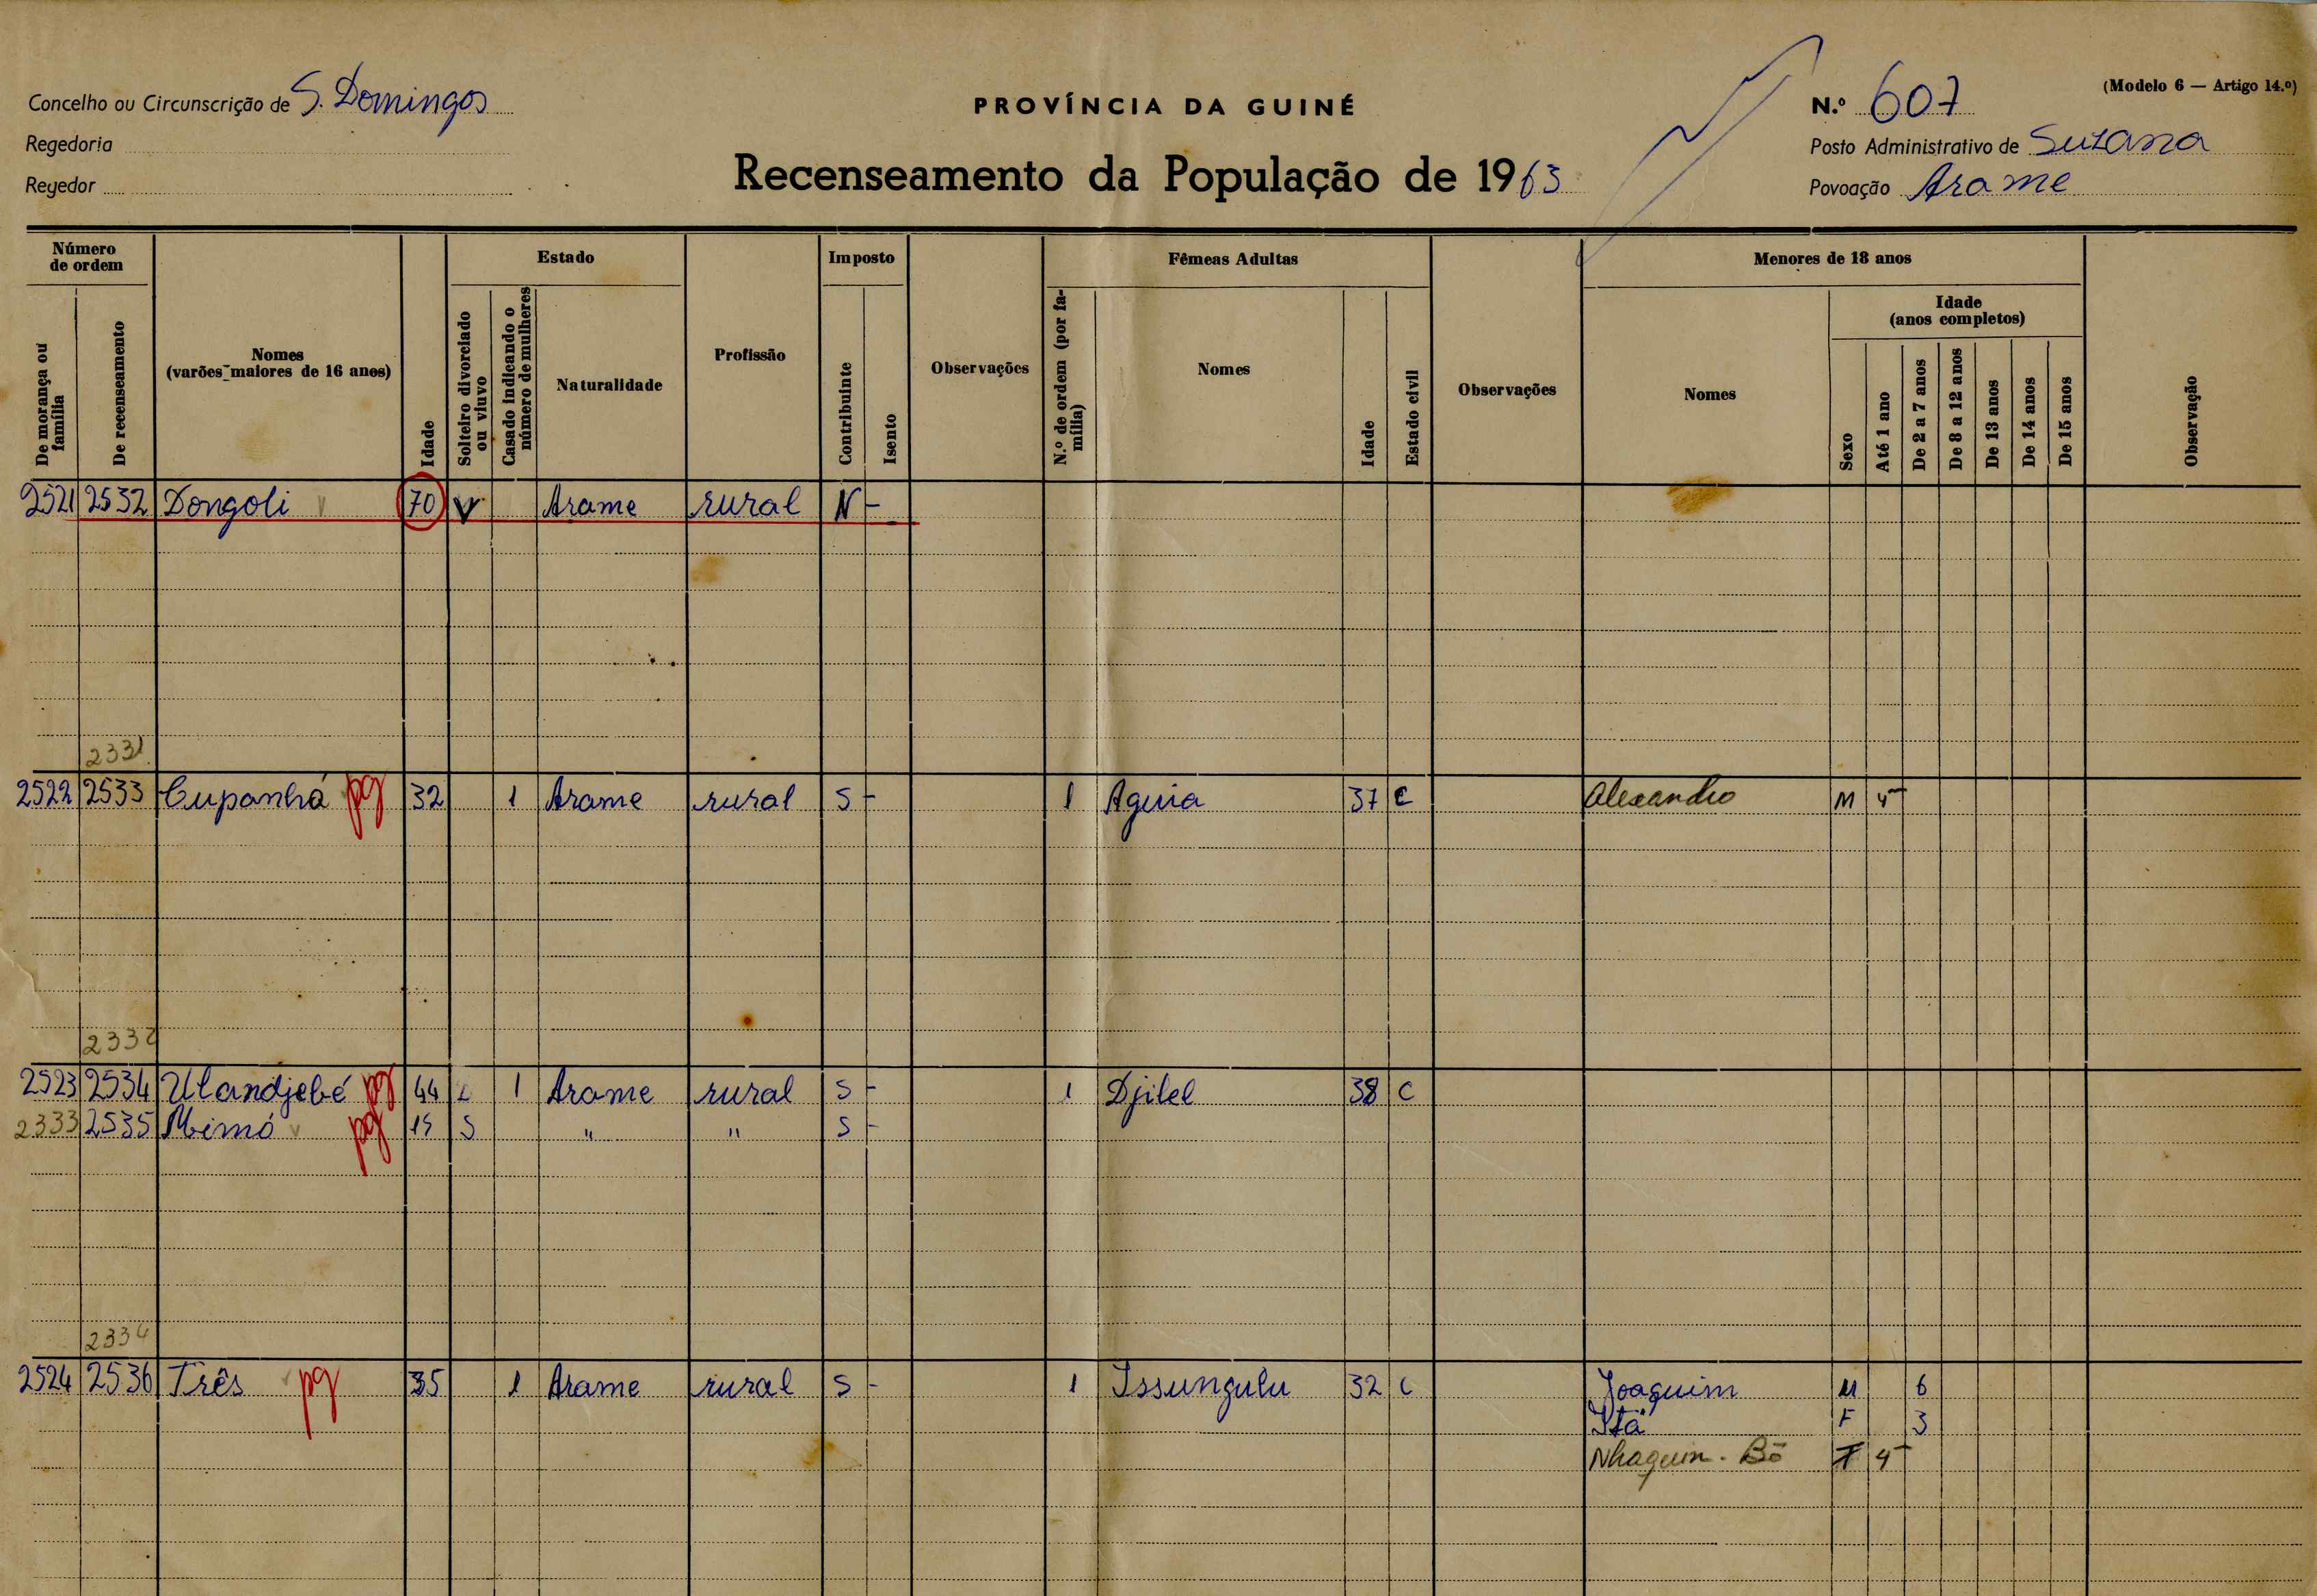 Concelho ou Circunscrição de S. Domingos
PROVÍNCIA DA GUINÉ
N.º 607
(Modelo 6 — Artigo 14.º)
Regedoria
Posto Administrativo de Suzana
Regedor
Recenseamento da População de 1963
Povoação Arame
Número de ordem
De morança ou família
De recenseamento
Nomes
(varões maiores de 16 anos)
Idade
Estado
Solteiro divorciado ou viuvo
Casado indicando o número de mulheres
Naturalidade
Profissão
Imposto
Contribuinte
Isento
Observações
Fêmeas Adultas
N.º de ordem (por família)
Nomes
Idade
Estado civil
Observações
Menores de 18 anos
Nomes
Sexo
Idade
(anos completos)
Até 1 ano
De 2 a 7 anos
De 8 a 12 anos
De 13 anos
De 14 anos
De 15 anos
Observação
2521 2532 Dongoli 70 V Arame rural N -
2331
2522 2533 Cupanhá pg 32 1 Arame rural S - 1 Aguia 37 C Alexandro M
2332
2523 2534 Utandjebé pg 44 1 Arame rural S - 1 Djitel 38 C
2333 2535 Mimó pg S " " S -
2334
2524 2536 Três pg 35 1 Arame rural S - 1 Issungulu 32 C Joaquim M 6
Itá F 3
Nhaguim. Bó F